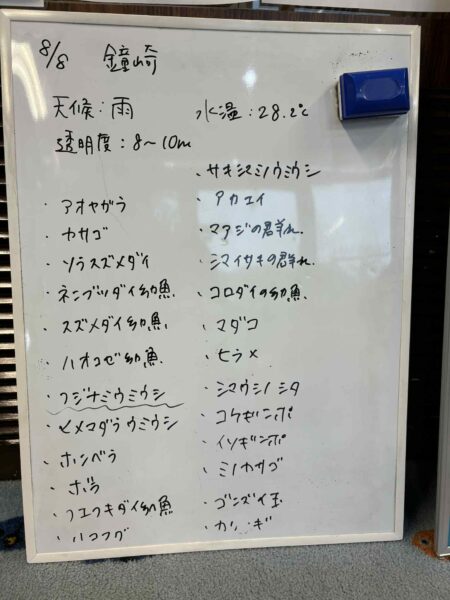 8/8 鐘崎
天候：雨 水温：28.2℃
透明度：8～10m
・アオヤガラ
・カサゴ
・ソラスズメダイ
・ネンブツダイ幼魚
・スズメダイ幼魚
・ハオコゼ幼魚
・フジナミウミウシ
・ヒメマダラウミウシ
・ホンベラ
・ボラ
・フエフキダイ幼魚
・ハコフグ
・サキシマミノウミウシ
・アカエイ
・マアジの群れ
・シマイサキの群れ
・コロダイの幼魚
・マダコ
・ヒラメ
・シマウシノシタ
・コケギンポ
・イソギンポ
・ミノカサゴ
・ゴンズイ玉